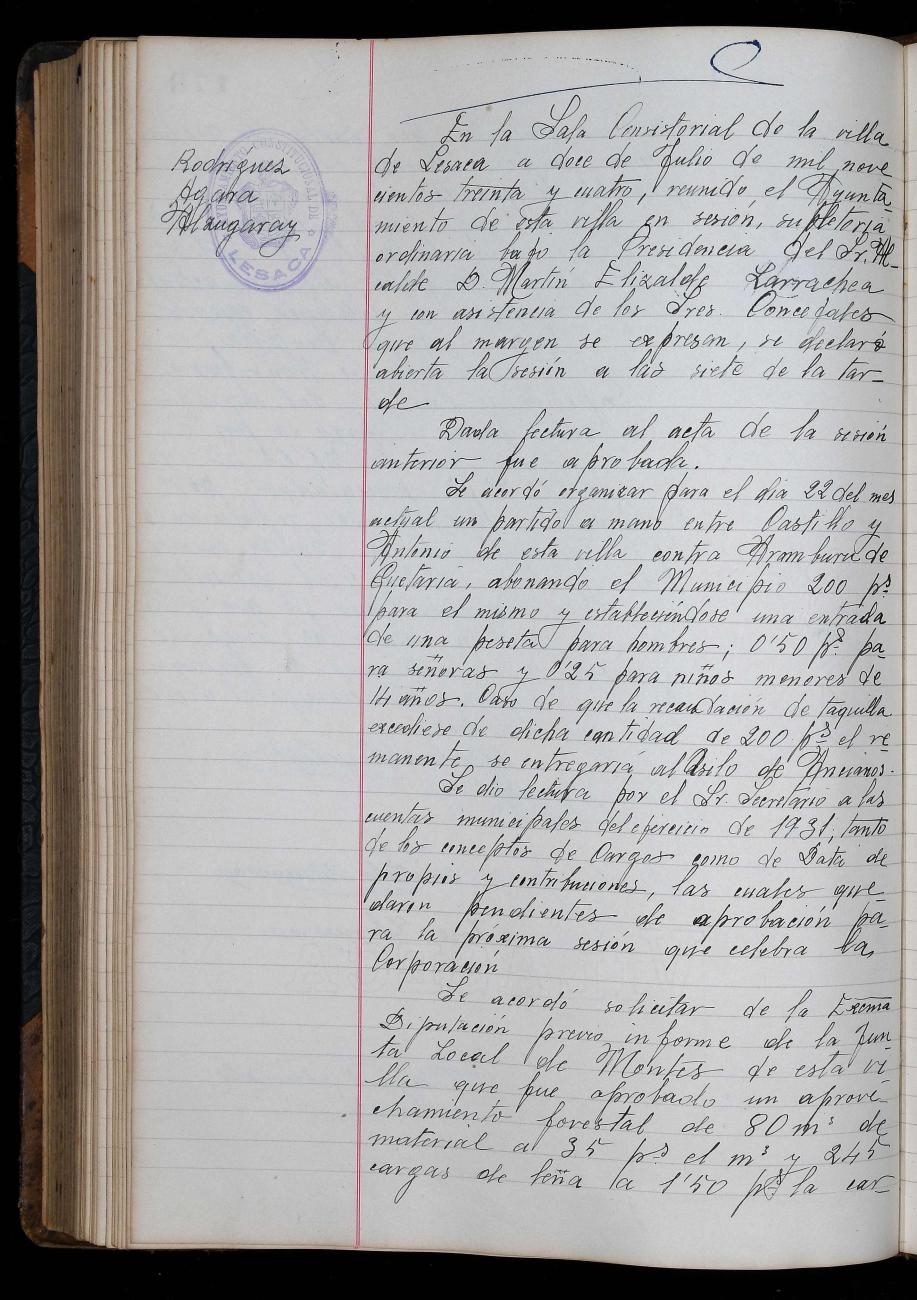 Rodriguez
Agara
Alzugaray
LESACA
En la Sala Consistorial de la villa
de Lesaca a doce de Julio de mil nove
cientos treinta y cuatro, reunido el Ayunta-
miento de esta villa en sesión, supletoria
ordinaria bajo la Presidencia del Sr. Al-
calde D. Martín Elizalde Larrachea
y con asistencia de los Sres. Concejales
que al margen se expresan, se declaró
abierta la sesión a las siete de la tar-
de
Dada lectura al acta de la sesión
anterior fue aprobada.
Se acordó organizar para el dia 22 del mes
actual un partido a mano entre Castillo y
Antonio de esta villa contra Aramburu de
Guetaria, abonando el Municipio 200 pts
para el mismo y estableciéndose una entrada
de una peseta para hombres; 0'50 pts. pa-
ra señoras y 0'25 para niños menores de
14 años. Caso de que la recaudación de taquilla
excediese de dicha cantidad de 200 pts el re-
manente se entregaría al Asilo de Ancianos.
Se dio lectura por el Sr. Secretario a las
cuentas municipales del ejercicio de 1931, tanto
de los conceptos de Cargos como de Data de
propios y contribuciones, las cuales que-
daron pendientes de aprobación pa-
ra la próxima sesión que celebra la
Corporación
Se acordó solicitar de la Excma
Diputación previo informe de la Jun-
ta Local de Montes de esta vi-
lla que fue aprobado un aprove-
chamiento forestal de 80 m³ de
material a 35 pts el m³ y 245
cargas de leña a 1'50 pts la car-